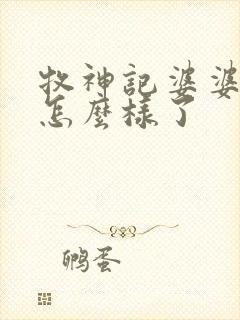 牧神記婆婆
怎麼樣了
鸭蛋